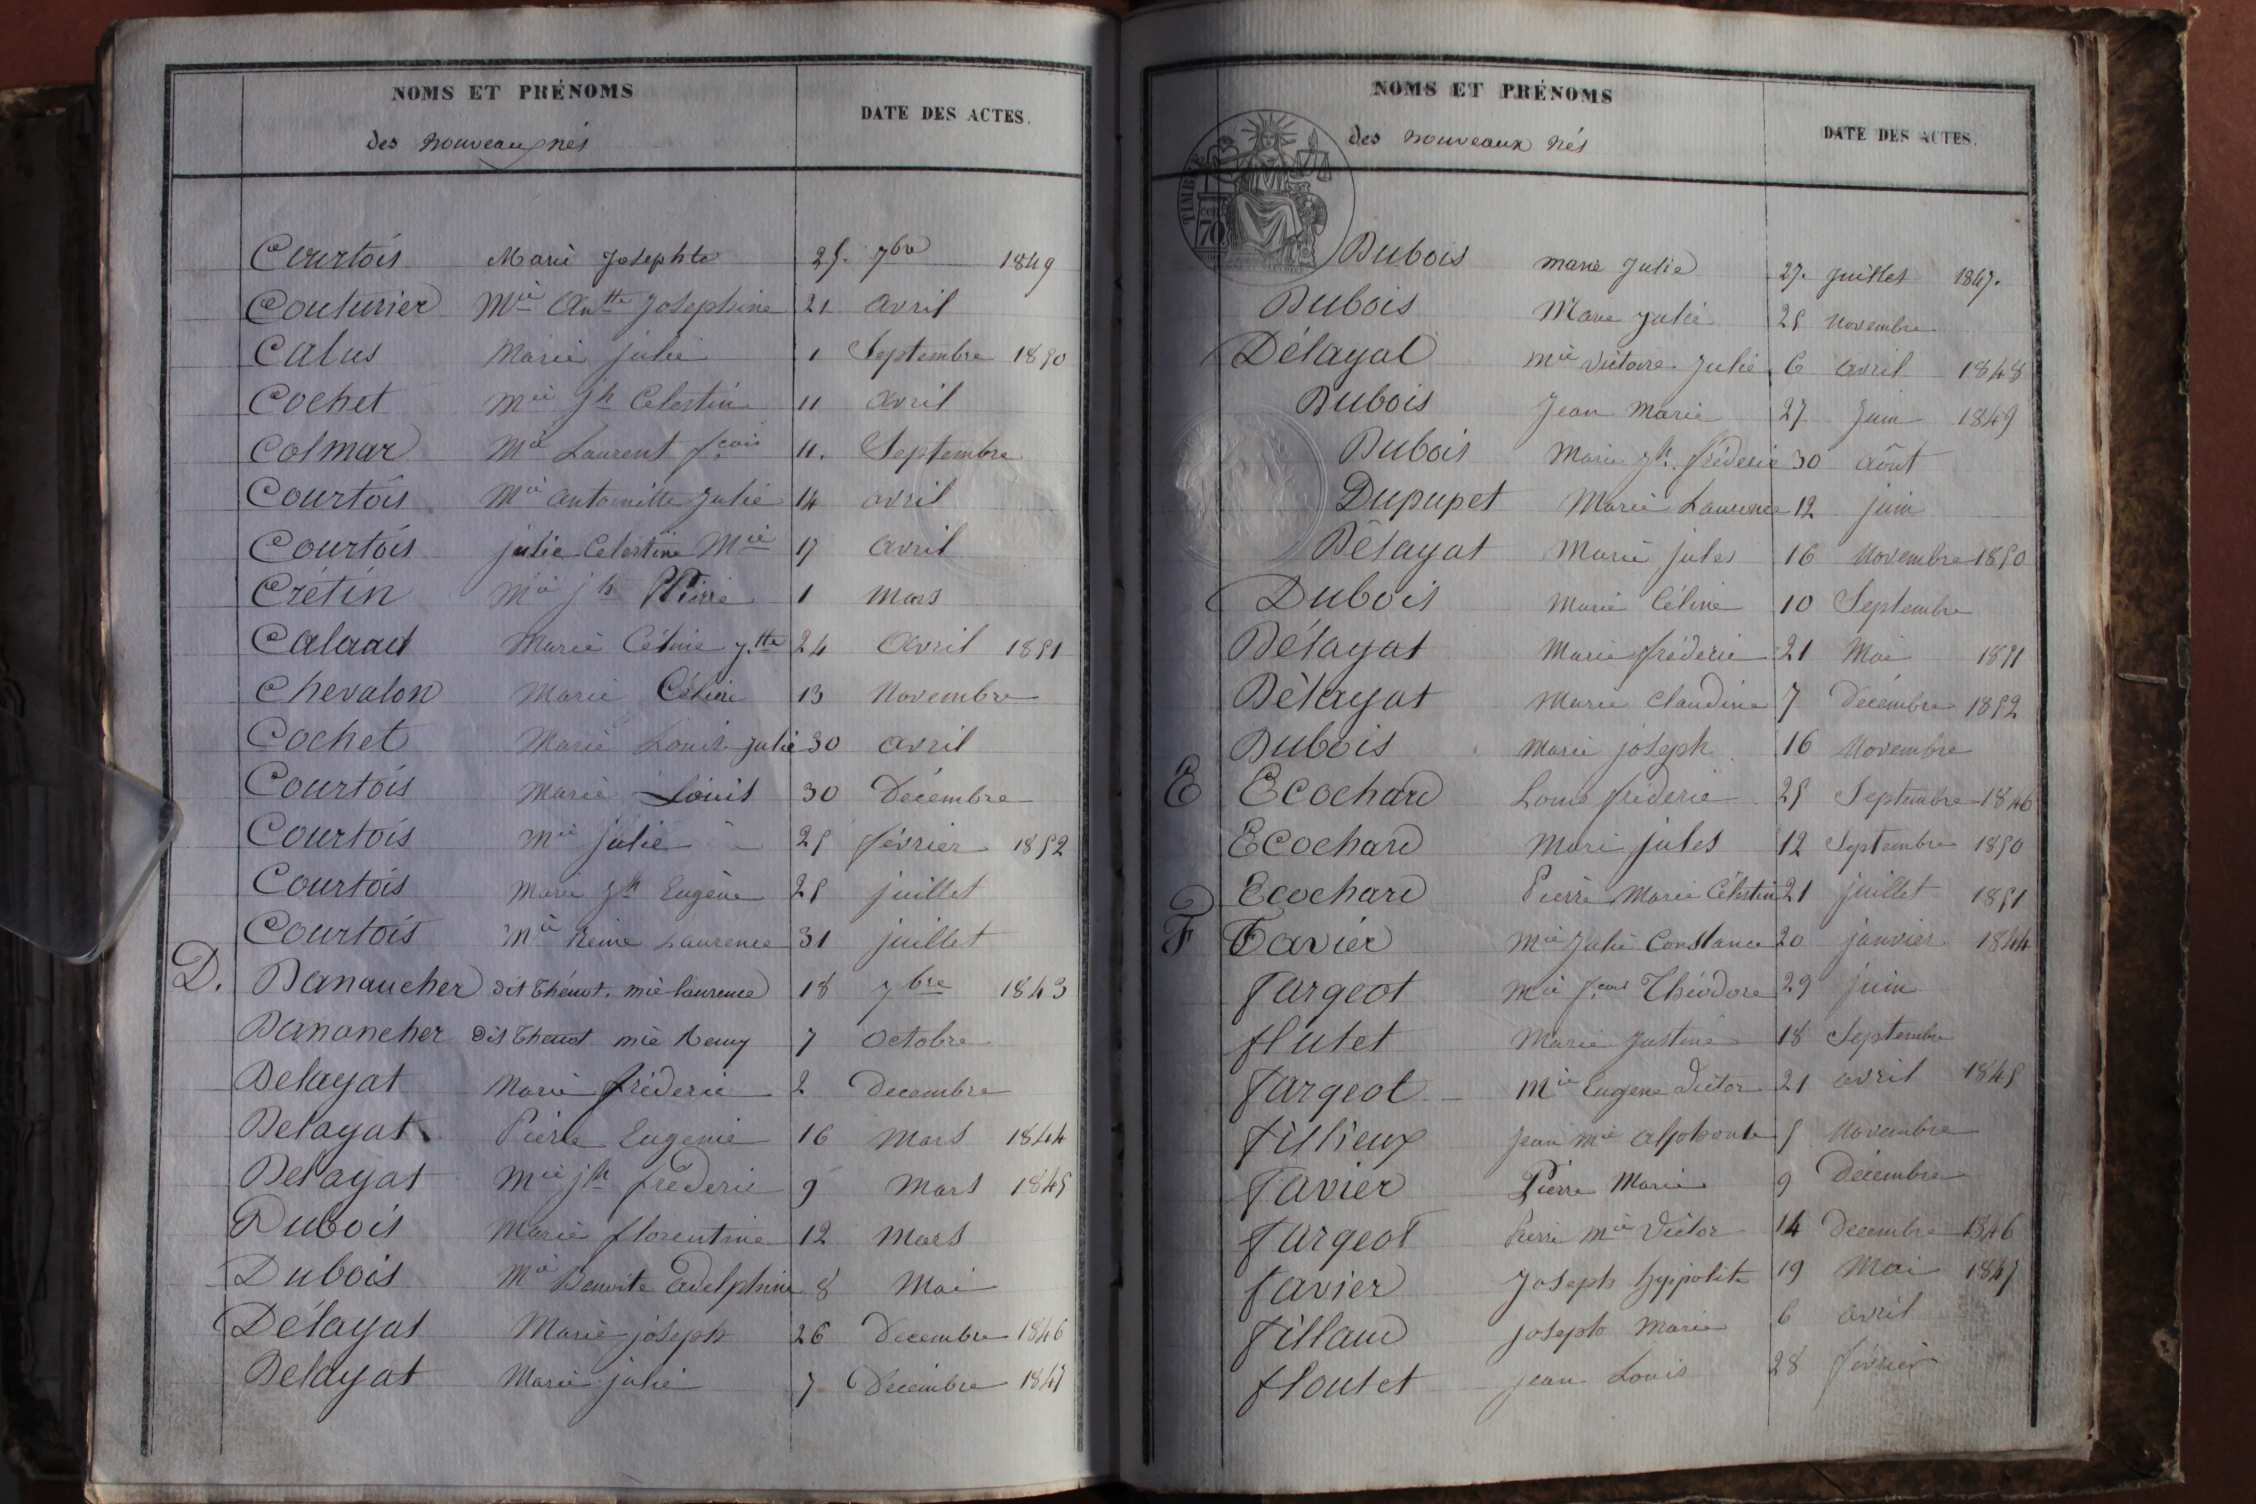 NOMS ET PRÉNOMS
DATE DES ACTES.
des nouveaux nés
Courtois Marie Josephte 25. 7bre 1849
Couturier Mie Antte Josephine 21 avril
Calus Marie julie 1 Septembre 1850
Cochet Mie Jh Celestin 11 avril
Colmar Mie Laurent fçois 11. Septembre
Courtois Mie antoinette Julie 14 avril
Courtois julie Celestine Mie 17 avril
Crétin Mie jh Pierre 1 Mars
Calaud Marie Céline j.tte 24 Avril 1851
Chevalon Marie Céline 13 Novembre
Cochet Marie Louis Julie 30 avril
Courtois Marie Louis 30 Décembre
Courtois Mie julie 25 février 1852
Courtois Marie Jh Eugène 25 juillet
Courtois Mie Reine Laurence 31 juillet
D. Danancher dit Thénot. mie laurence 18 7bre 1843
Danancher dit Thenot mie Remy 7 octobre
Delayat Marie fréderic 2 Decembre
Delayat Pierre Eugenie 16 Mars 1844
Delayat Mie jh fréderic 9 Mars 1845
Dubois Marie florentine 12 Mars
Dubois Mie Benoite Adelphine 8 Mai
Délayat Marie joseph 26 Decembre 1846
Delayat Marie julie 7 Décembre 1847
NOMS ET PRÉNOMS
DATE DES ACTES.
des nouveaux nés
TIMBRE
70
Dubois marie Julie 27. Juillet 1847.
Dubois Marie Julie 25 Novembre
Délayat Mie Victoire Julie 6 avril 1848
Dubois Jean Marie 27 Juin 1849
Dubois Marie Jh. fréderic 30 Août
Dupupet Marie Laurence 12 juin
Délayat Marie jules 16 Novembre 1850
Dubois Marie Céline 10 Septembre
Délayat Marie fréderic 21 Mai 1851
Délayat Marie Claudine 7 Décembre 1852
Dubois Marie joseph 16 Novembre
E Ecochard Louis fréderic 25 Septembre 1846
Ecochard Mari jules 12 Septembre 1850
Ecochard Pierre Marie Célestin 21 juillet 1851
F Favier Mie Julie Constance 20 janvier 1844
Fargeot Mie fçois Théodore 29 juin
flutet Marie Justine 18 Septembre
Fargeot Mie Eugene Victor 21 avril 1845
Fillieux Jean Mie Alphonse 5 Novembre
Favier Pierre Marie 9 Décembre
Fargeot Pierre Mie Victor 14 Decembre 1846
favier Joseph hyppolite 19 Mai 1847
Fillaud Joseph Marie 6 avril
floutet jean Louis 28 février